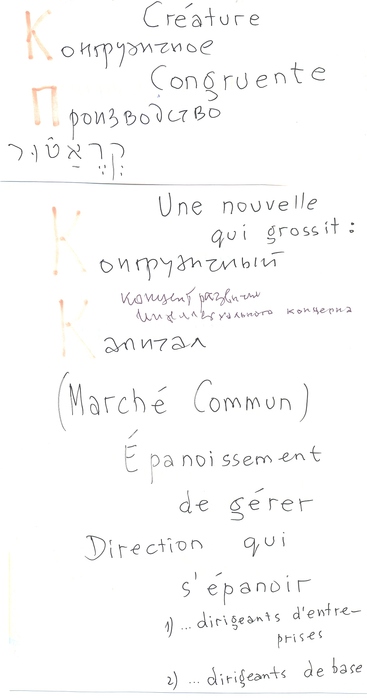 Créature
Конгруэнтное
Congruente
Производство
Une nouvelle
qui grossit:
Конгруэнтный
концепт развития
концерна
Капитал
(Marché Commun)
Épanoissement
de gérer
Direction qui
s'épanoir
1) ... dirigeants d'entre-
prises
2) ... dirigeants de base